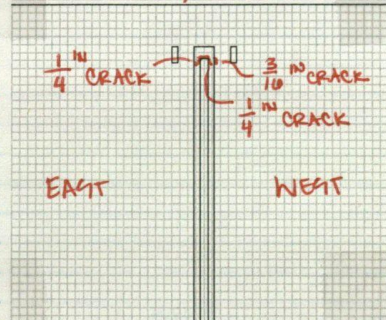 1/4 IN CRACK
3/16 IN CRACK
1/4 IN CRACK
EAST
WEST